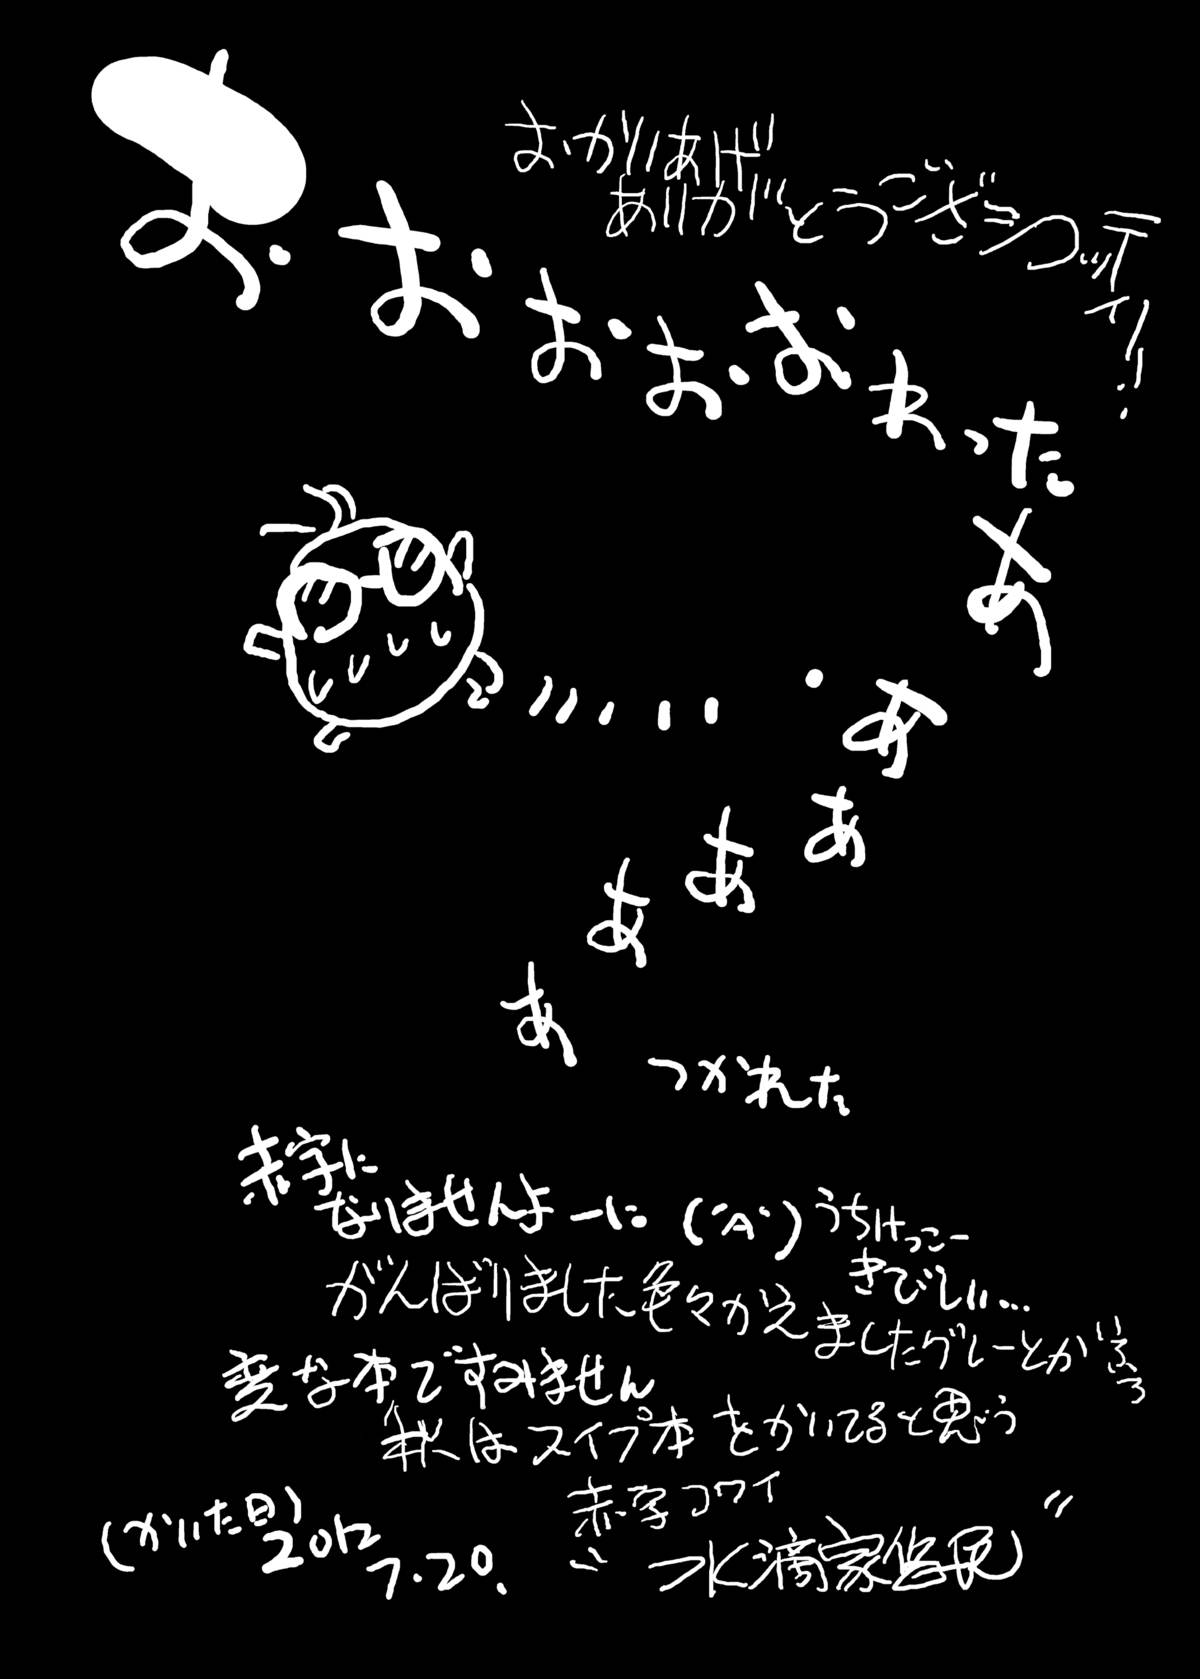 おかいあげ
ありがとうござ
お・お お お・おわった
あ
あ
あ
あ
あ
あ
つかれた
赤字に
なりませんよーに (´A`) うちけっこー
きびしい…
がんばりました 色々かえました グレーとか
変な本ですみません
秋はスイプ本をかいてると思う
赤字コワイ
(かいた日) 2012
7.20.
水滴家住民